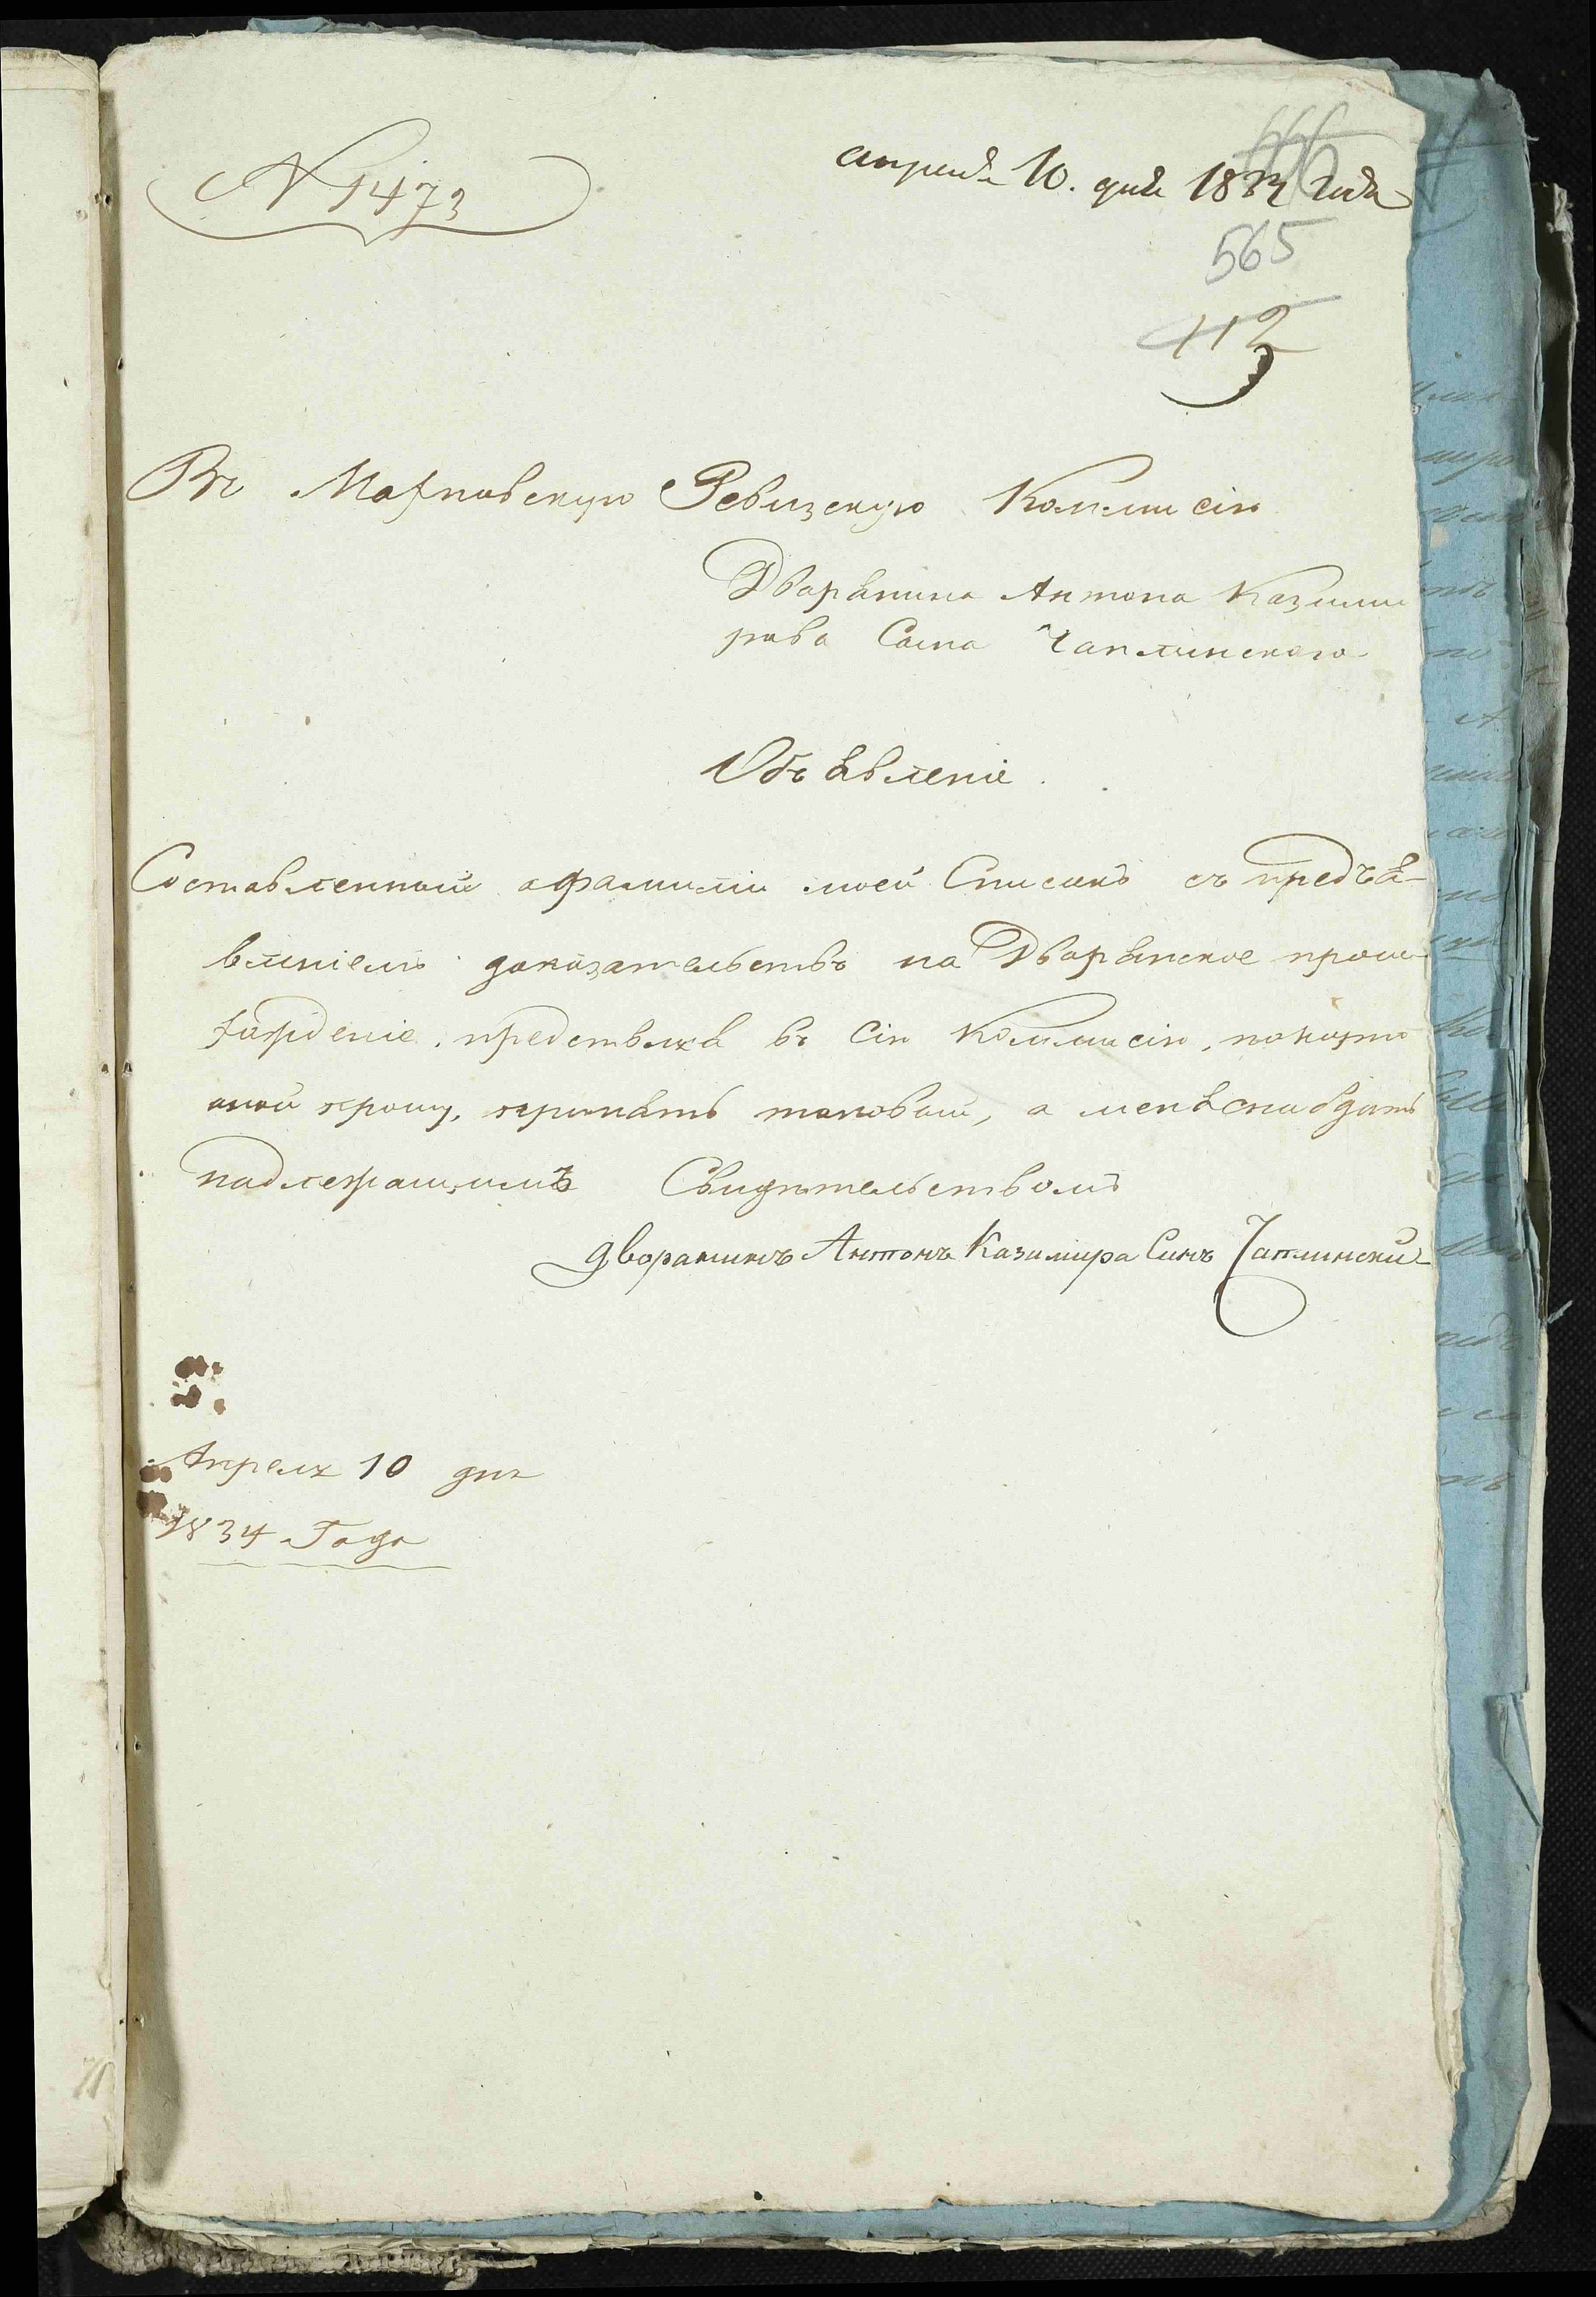 N 1473
апреля 10. дня 1834 года
565
112
Въ Махновскую Ревизскую Коммисію
Дворянина Антона Казими
рова Сына Чаплинскаго
Объявленіе.
Составленный офамиліи моей Списокъ съ предъя-
вленіемъ доказательствъ на Дворянское проис
хожденіе, предствляя въ Сію Коммисію,
прошу, принять таковый, а меня снабдить
надлежащимъ Свидѣтельствомъ
дворанинъ Антонъ Казимира Синъ Чаплинскій
Апреля 10 дня
1834 Года